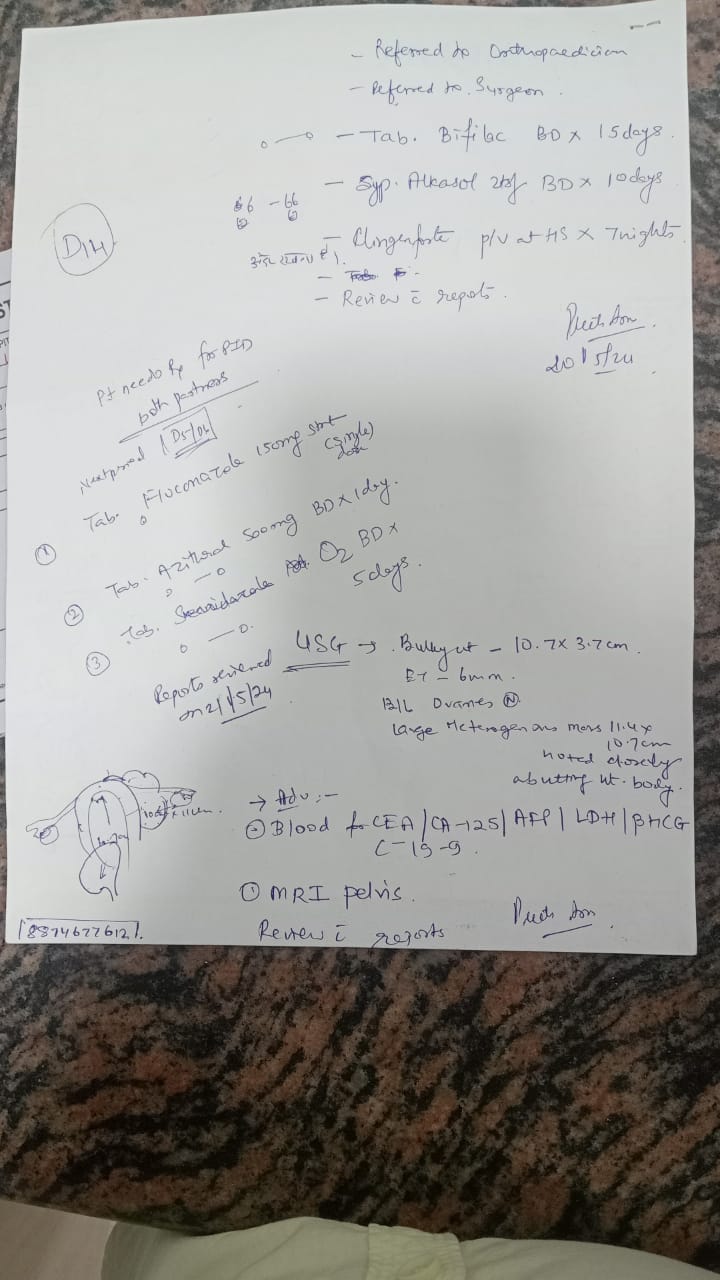 - Referred to Orthopaedician
- Referred to Surgeon.
- Tab. Bifilac BD x 15 days.
- Syp. Alkasol 2tsf BD x 10 days
- Clingenforte p/v at HS x 7 nights.
- Review c̄ reports.
D14
20/5/24
Pt needs Rx for PID
both partners
Next period (D5/D6)
① Tab. Fluconazole 150mg stat
(single)
dose
② Tab. Azithral 500mg BD x 1 day.
③ Tab. O2 BD x
5 days.
Reports reviewed
on 21/5/24
USG → Bulky ut - 10.7 x 3.7 cm.
ET - 6mm.
B/L Ovaries Ⓝ
Large Heterogenous mass 11.4 x
10.7cm
noted closely
abutting ut. body.
→ Adv:-
Blood for CEA / CA-125 / AFP / LDH / βHCG
C-19-9.
① MRI pelvis.
Review c̄ reports
8874677612